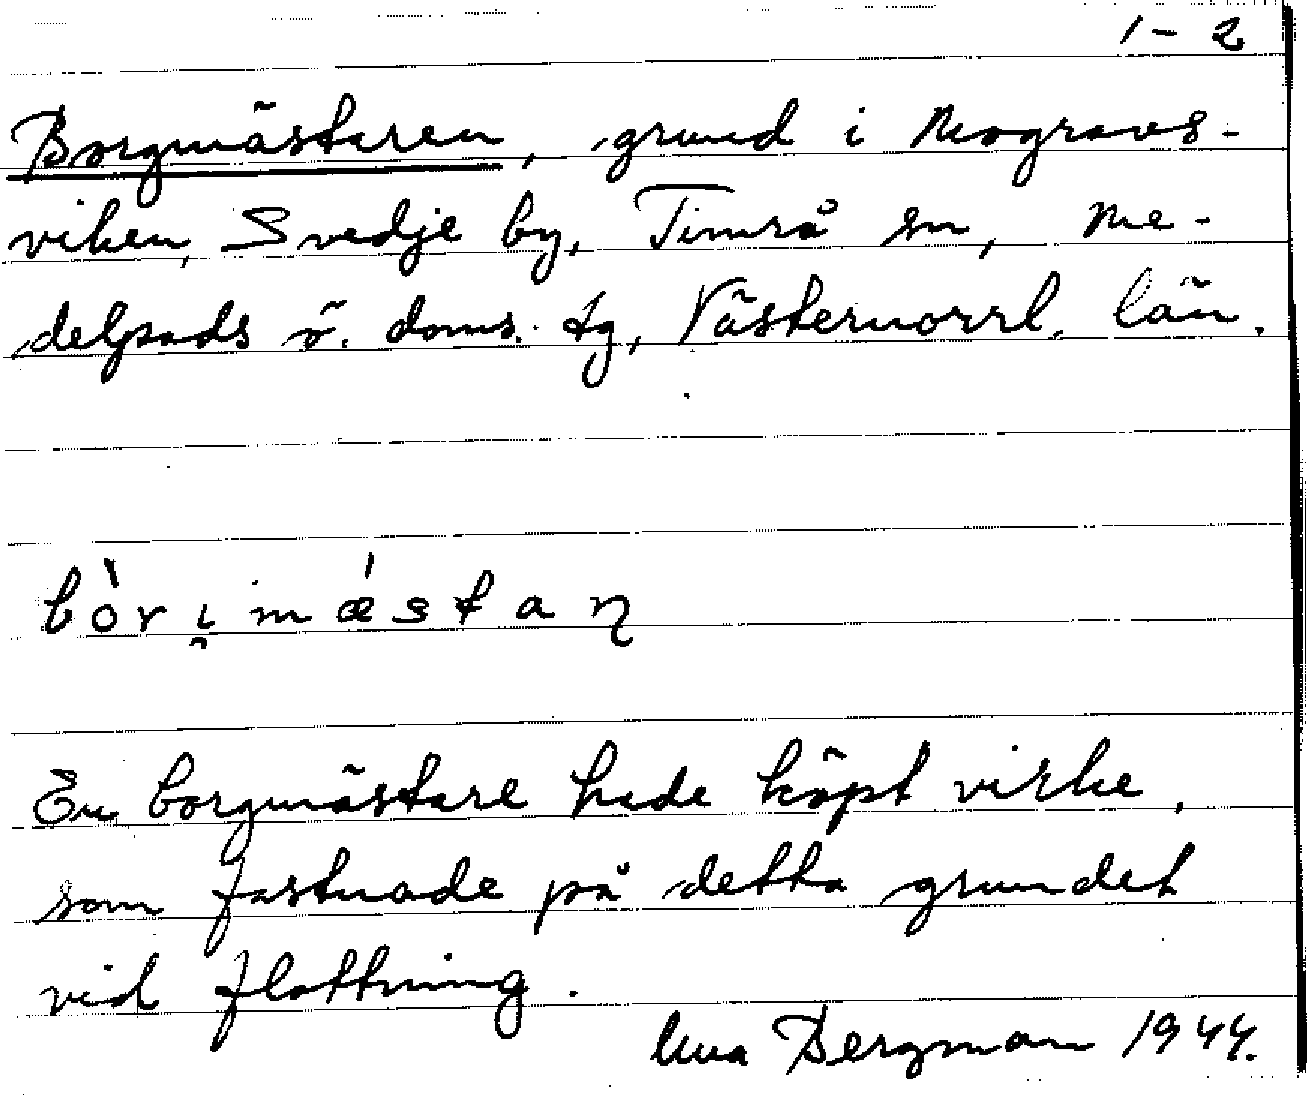 1-2
Borgmästaren, grund i Mogravs-
viken, Svedje by, Timrå sn, Me-
delpads ö. doms. tg, Västernorrl. län.
bòri̯mǽstaɳ
En borgmästare hade köpt virke,
som fastnade på detta grundet
vid flottning.
Una Bergman 1944.